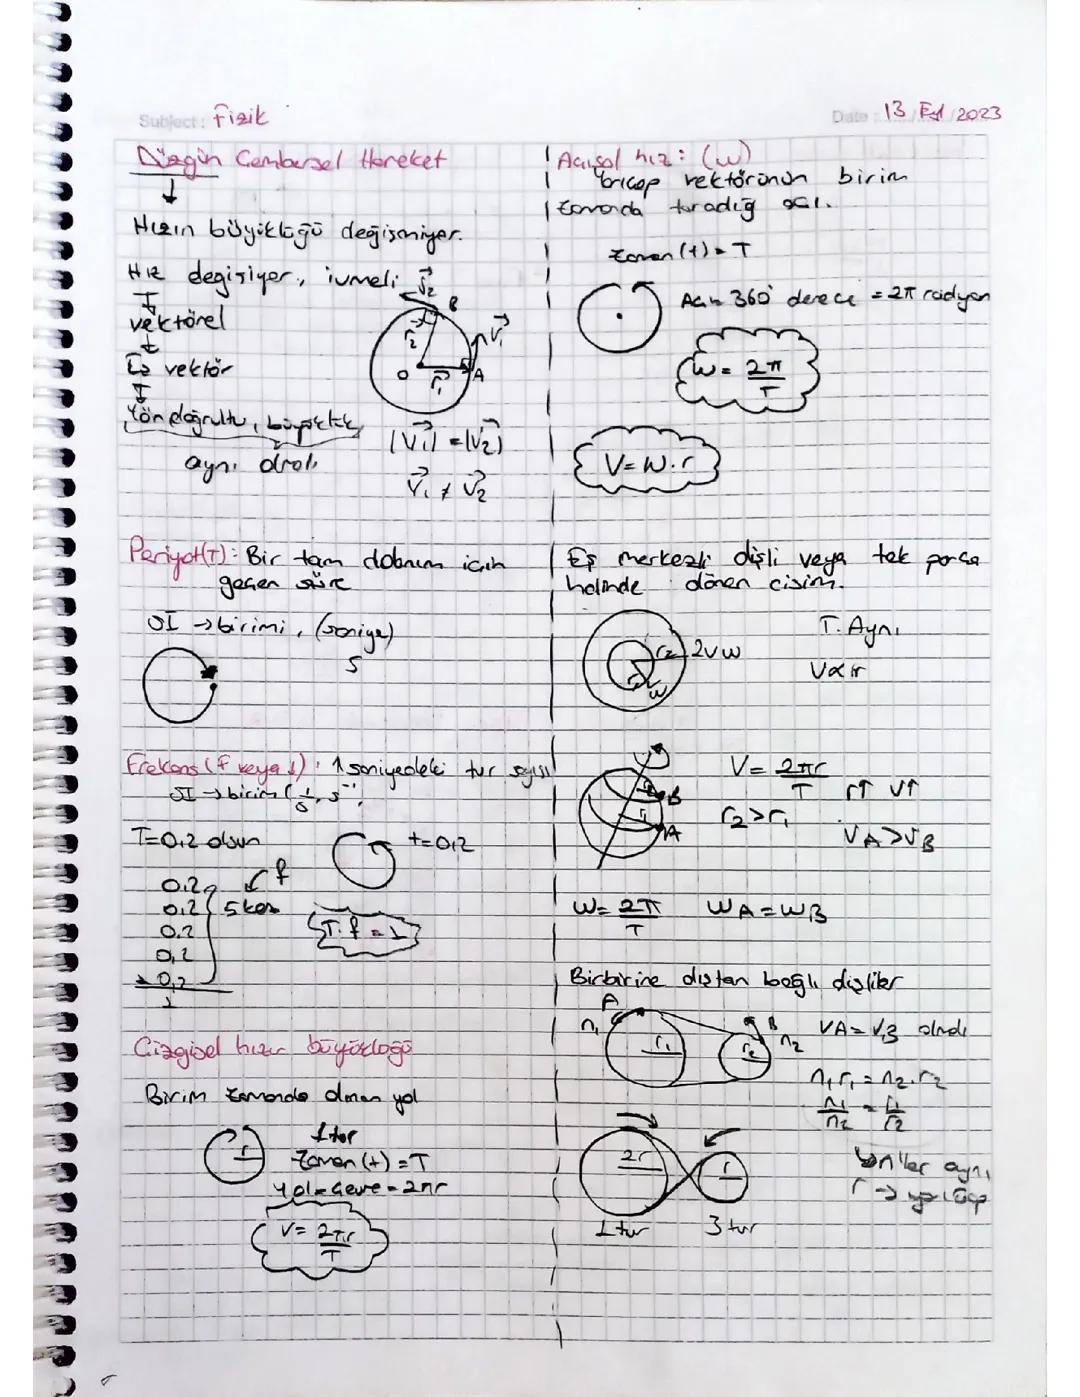 Subject: Fizik
Date: 13 Eyl 2023
Düzgün Çembersel Hareket
Hızın büyüklüğü değişmiyor.
Hız değişiyor, ivmeli
vektörel
Eş vektör
Yön doğrultu, büyüklük
aynı olmalı
V₂
B
r₂
V₁
O
r₁
A
|V₁| = |V₂|
V₁ ≠ V₂
Periyot(T): Bir tam dolanım için
geçen süre
SI → birimi, (saniye)
s
Frekans (f veya ): 1 saniyedeki tur sayısı
SI → birim (1/s, s⁻¹,
T=0,2 olsun
t=0,2
f
0,2
0,2
5 kez
0,2
0,2
+ 0,2
1
T.f = 1
Çizgisel hızın büyüklüğü
Birim zamanda alınan yol
r
1 tur
Zaman (t) = T
Yol = Çevre = 2πr
V = 2πr/T
Açısal hız: (w)
Yarıçap vektörünün birim
zamanda taradığı açı.
Zaman (t) = T
Açı = 360° derece = 2π radyan
W = 2π/T
V = W.r
Eş merkezli dişli veya tek parça
halinde dönen cisim.
r₂ 2v w
w
T. Aynı
V∝r
V = 2πr/T
r↑ v↑
B
A
r₂>r₁
VA>VB
W = 2π/T WA = WB
Birbirine dıştan bağlı dişliler
A
n₁
r₁
B
r₂
n₂
VA = VB olmalı
n₁r₁ = n₂.r₂
n₁/n₂ = r₁/r₂
2r
r
1 tur
3 tur
Yönler aynı
r → yarıçap